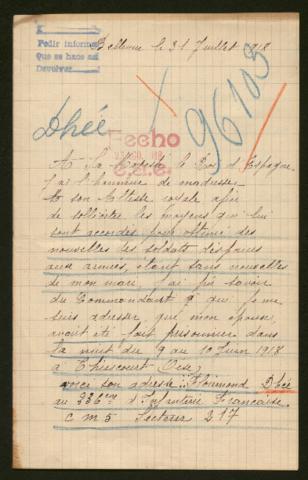 Pedir informe
Que se hace así
Devolver
Bellevue le 31 Juillet 1918
Dhée
96103
Fecho
A Sa Majesté le Roi d'Espagne
J'ai l'honneur de m'adresser
à son Altesse royale afin
de solliciter les moyens qui lui
sont accordés pour obtenir des
nouvelles des soldats disparus
aux armées, étant sans nouvelles
de mon mari j'ai pu savoir
du Commandant que je me
suis adresser que mon epoux
avait été fait prisonnier dans
la nuit du 9 au 10 Juin 1918
à Thiescourt Oise
voici son adresse Florimond Dhée
au 336eme d'Infanterie Française
C M 5 Secteur 217